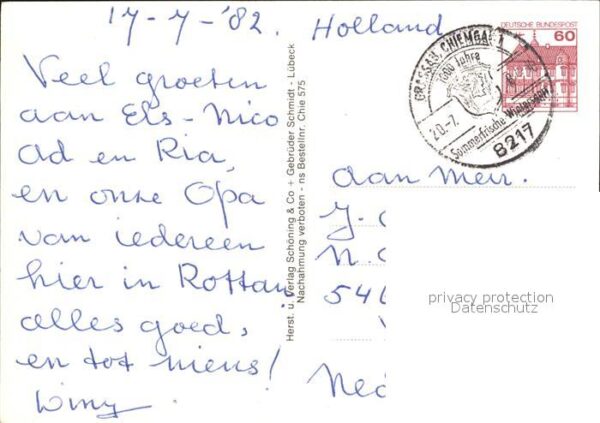 17-7-'82. Holland
Veel groeten
aan Els-Nico
Ad en Ria,
en onze Opa
van iedereen
hier in Rottau,
alles goed,
en tot niens!
Winy.
Herst. u. Verlag Schöning & Co + Gebrüder Schmidt - Lübeck
Nachahmung verboten - ns Bestellnr. Chie 575
DEUTSCHE BUNDESPOST
60
GRASSAU, CHIEMGAU 1
Jahre
20.-7.
Sommerfrische
8217
aan Mevr.
J.
N.
546
Ned
privacy protection
Datenschutz